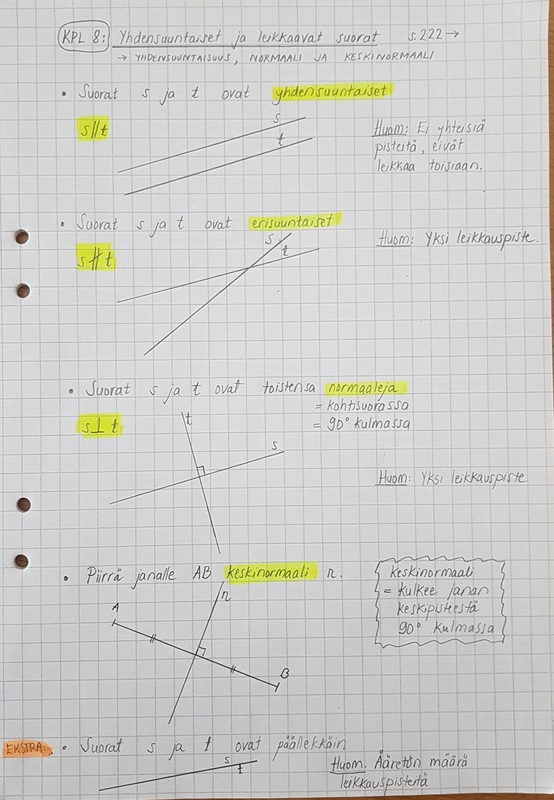 KPL 8: Yhdensuuntaiset ja leikkaavat suorat s.222 →
→ YHDENSUUNTAISUUS, NORMAALI JA KESKINORMAALI
• Suorat s ja t ovat yhdensuuntaiset
s∥t
s
t
Huom: Ei yhteisiä
pisteitä, eivät
leikkaa toisiaan.
• Suorat s ja t ovat erisuuntaiset
s∦t
s
t
Huom: Yksi leikkauspiste.
• Suorat s ja t ovat toistensa normaaleja
= kohtisuorassa
= 90° kulmassa
s⊥t
t
s
Huom: Yksi leikkauspiste
• Piirrä janalle AB keskinormaali n.
n
A
B
keskinormaali
= kulkee janan
keskipisteestä
90° kulmassa
EKSTRA: • Suorat s ja t ovat päällekkäin
s
t
Huom. Ääretön määrä
leikkauspisteitä